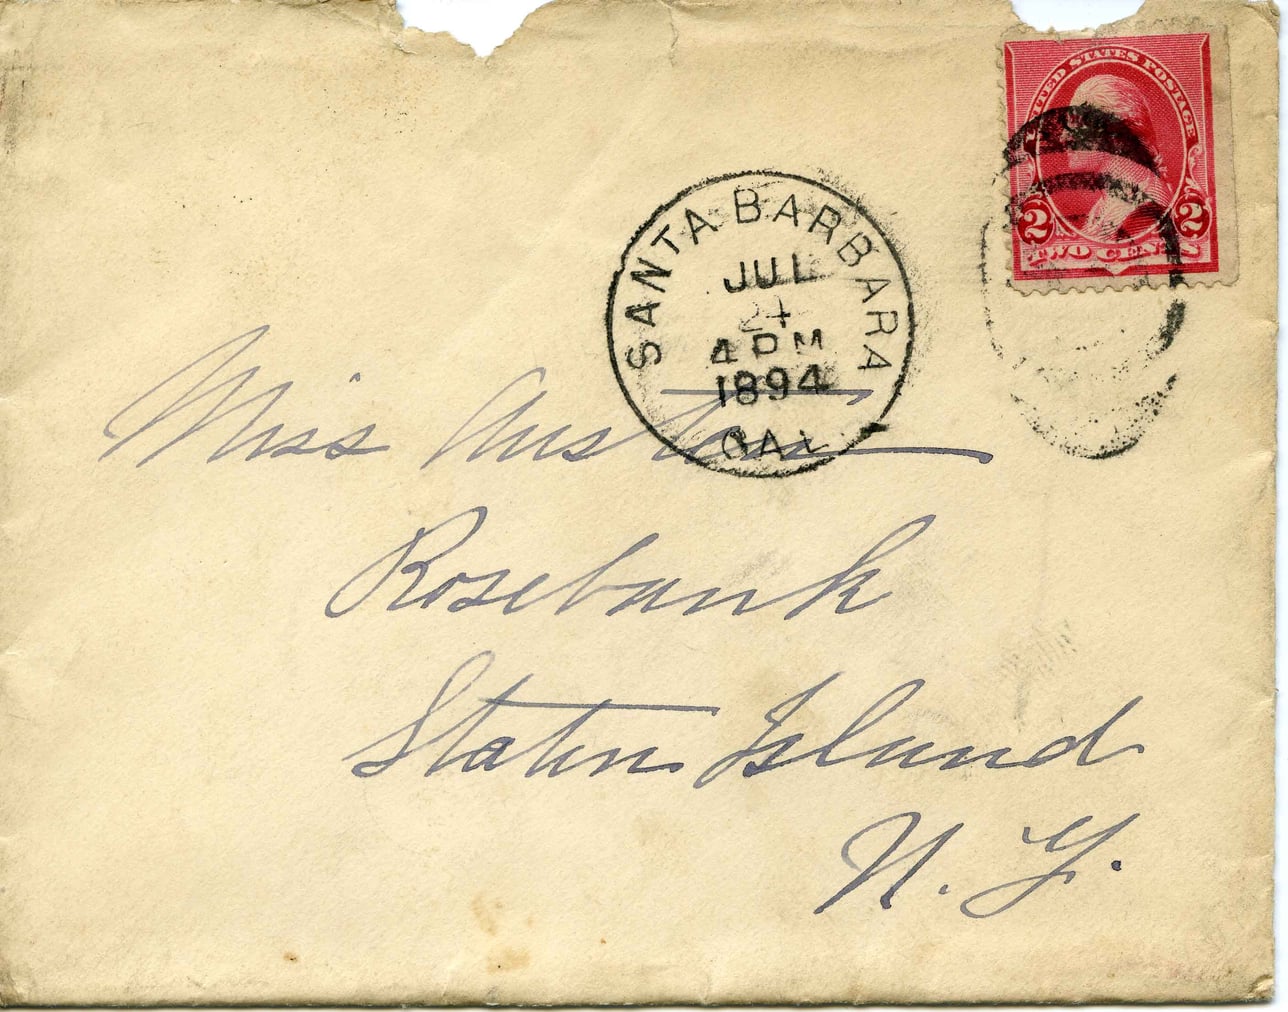 UNITED STATES POSTAGE
2 2
TWO CENTS
SANTA BARBARA
JUL
24
4 PM
1894
CAL
Miss Austen
Rosebank
Staten Island
N. Y.